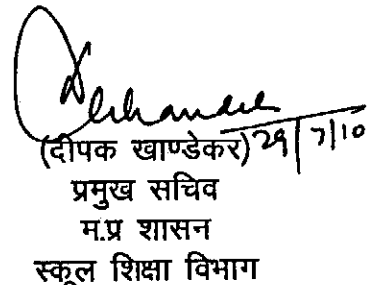 (दीपक खाण्डेकर) 29/7/10
प्रमुख सचिव
म.प्र शासन
स्कूल शिक्षा विभाग